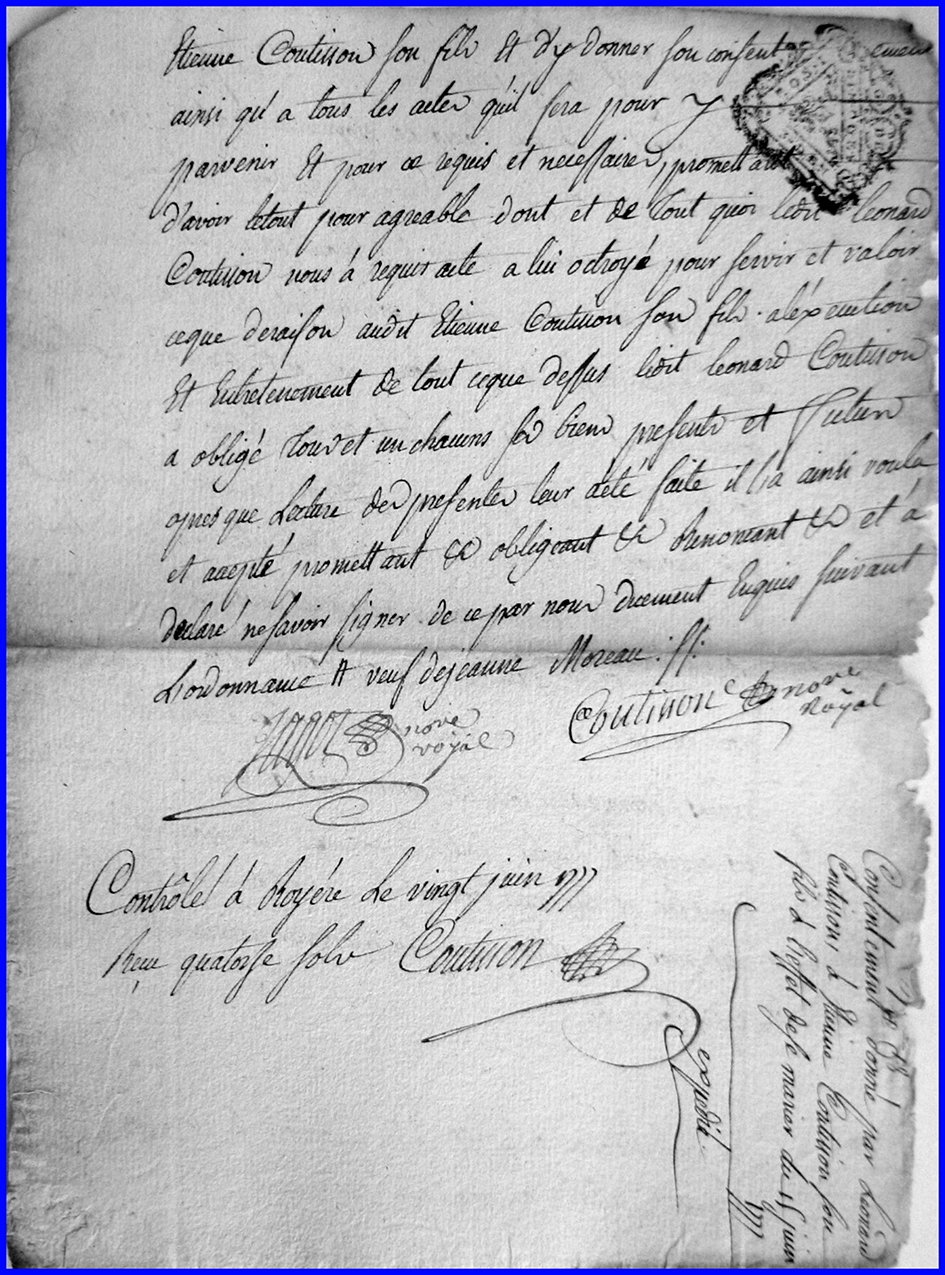 Etienne Coutisson son fils Et d'y donner son consentement
ainsi qu'a tous les actes qu'il fera pour y
parvenir Et pour ce requis et necessaires, promettant
d'avoir letout pour agreable dont et de Tout quoi ledit leonard
Coutisson nous à requis acte a lui octroyé pour servir et valoir
ceque deraison audit Etienne Coutisson son fils. aléxecution
Et Entretenement de tout ceque dessus ledit leonard Coutisson
a obligé Tous et un chacuns ses biens presents et futurs
apres que Lecture des presentes leur a été faite il l'a ainsi voulu
et accepté promettant &c obligeant &c Renoncant &c et à
declaré nesavoir signer de ce par nous duement Enquis suivant
L'ordonnance # veuf dejeanne Moreau ://:
nore
royal
Coutisson nore
royal
Contrôlé à Royére Le vingt juin 1777
Reçu quatorse sols Coutisson
expedié
Consentement donné par Léonard
Coutisson à Etienne Coutisson son
fils à L'effet dese marier du 15 juin
1777